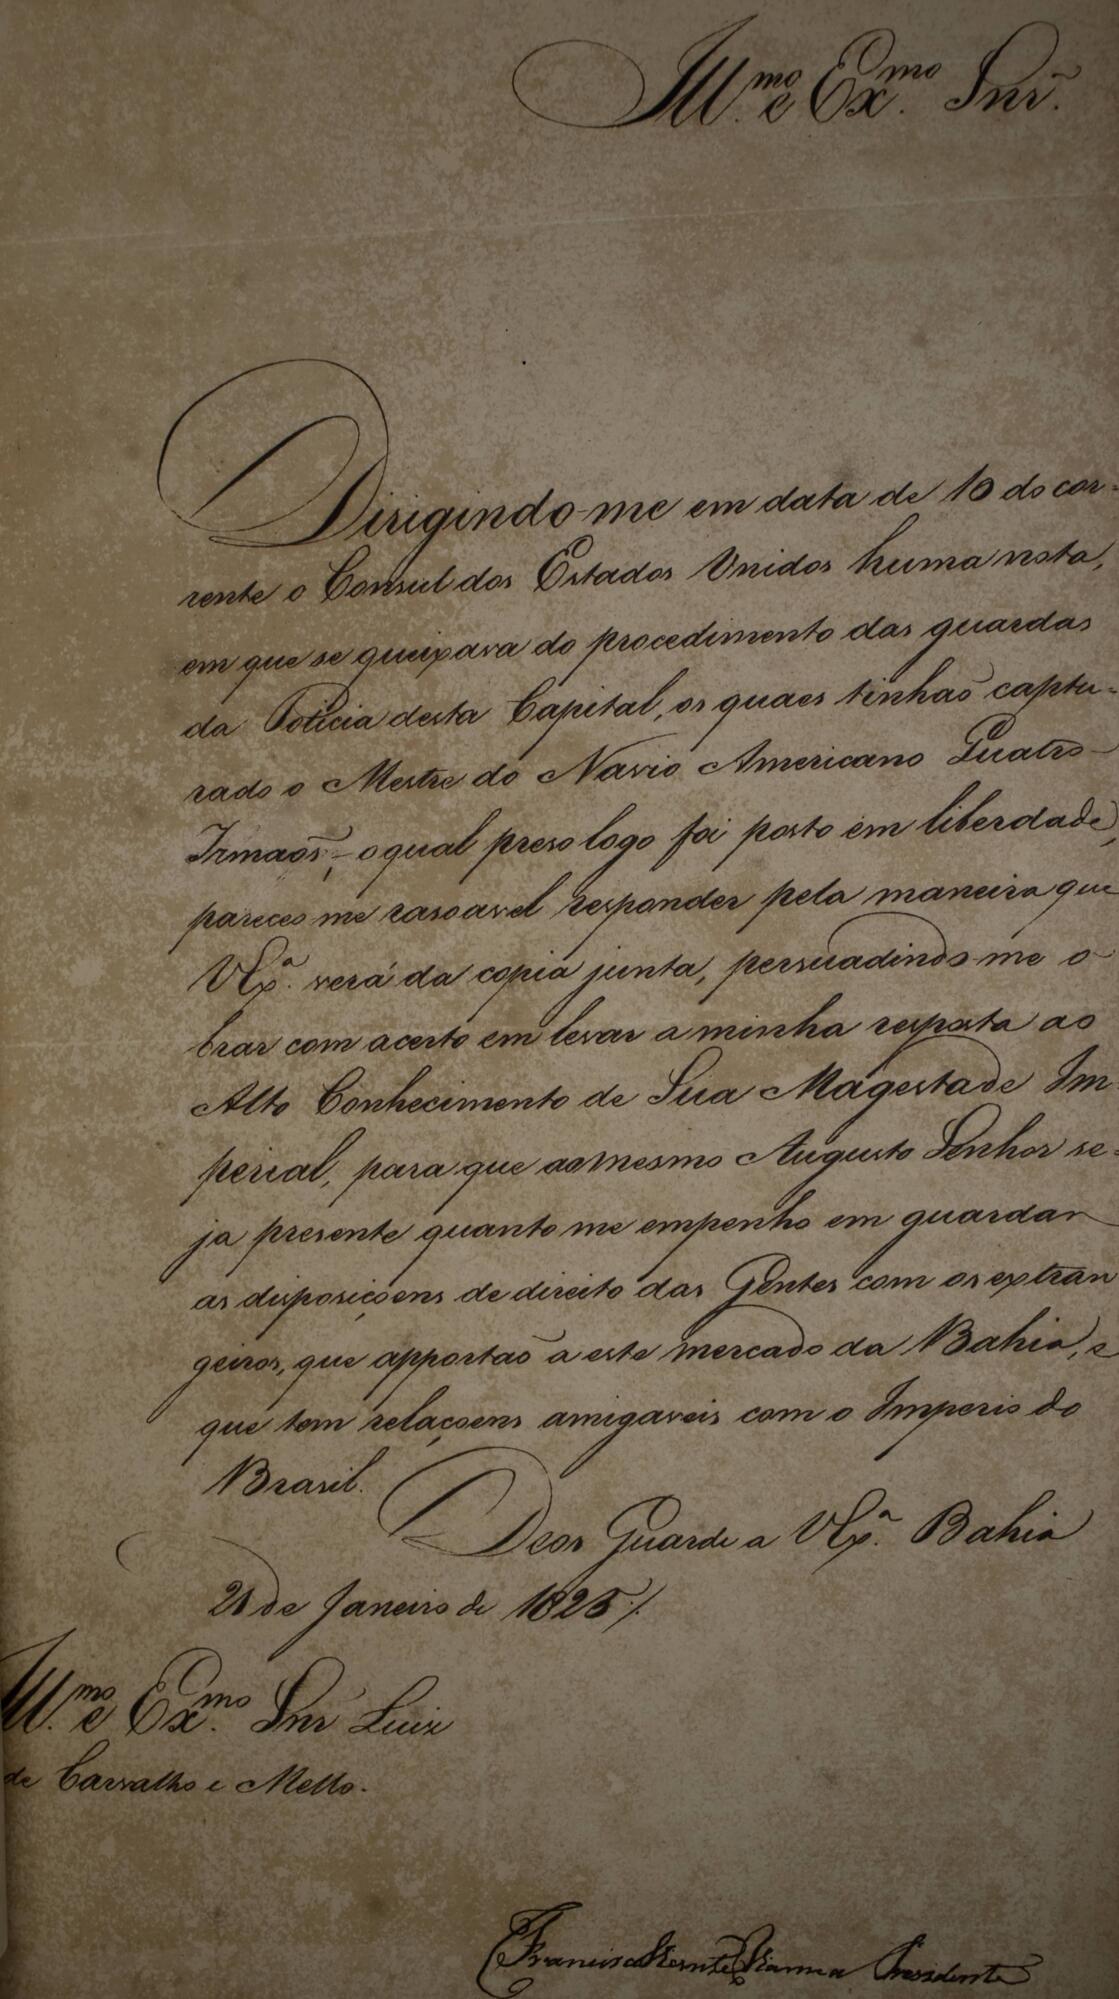 Ill.mo e Ex.mo Snr.
Dirigindo-me em data de 10 do cor-
rente o Consul dos Estados Unidos huma nota,
em que se queixava do procedimento das guardas
da Policia desta Capital, os quaes tinhaõ captu-
rado o Mestre do Navio Americano Quatro-
Irmaõs, o qual preso logo foi posto em liberdade,
pareceo me rasoavel responder pela maneira que
V Ex.ª verá da copia junta, persuadindo-me o-
brar com acerto em levar a minha resposta ao
Alto Conhecimento de Sua Magestade Im
perial, para que ao mesmo Augusto Senhor se-
ja presente quanto me empenho em guardar
as disposiçoens de direito das Gentes com os extran
geiros, que apportaõ a este mercado da Bahia, e
que tem relaçoens amigaveis com o Imperio do
Brasil.
Deos Guarde a V Ex.ª Bahia
21 de Janeiro de 1825 /.
Ill.mo e Ex.mo Snr Luiz
de Carvalho e Mello.
Francisco Vicente Vianna Presidente